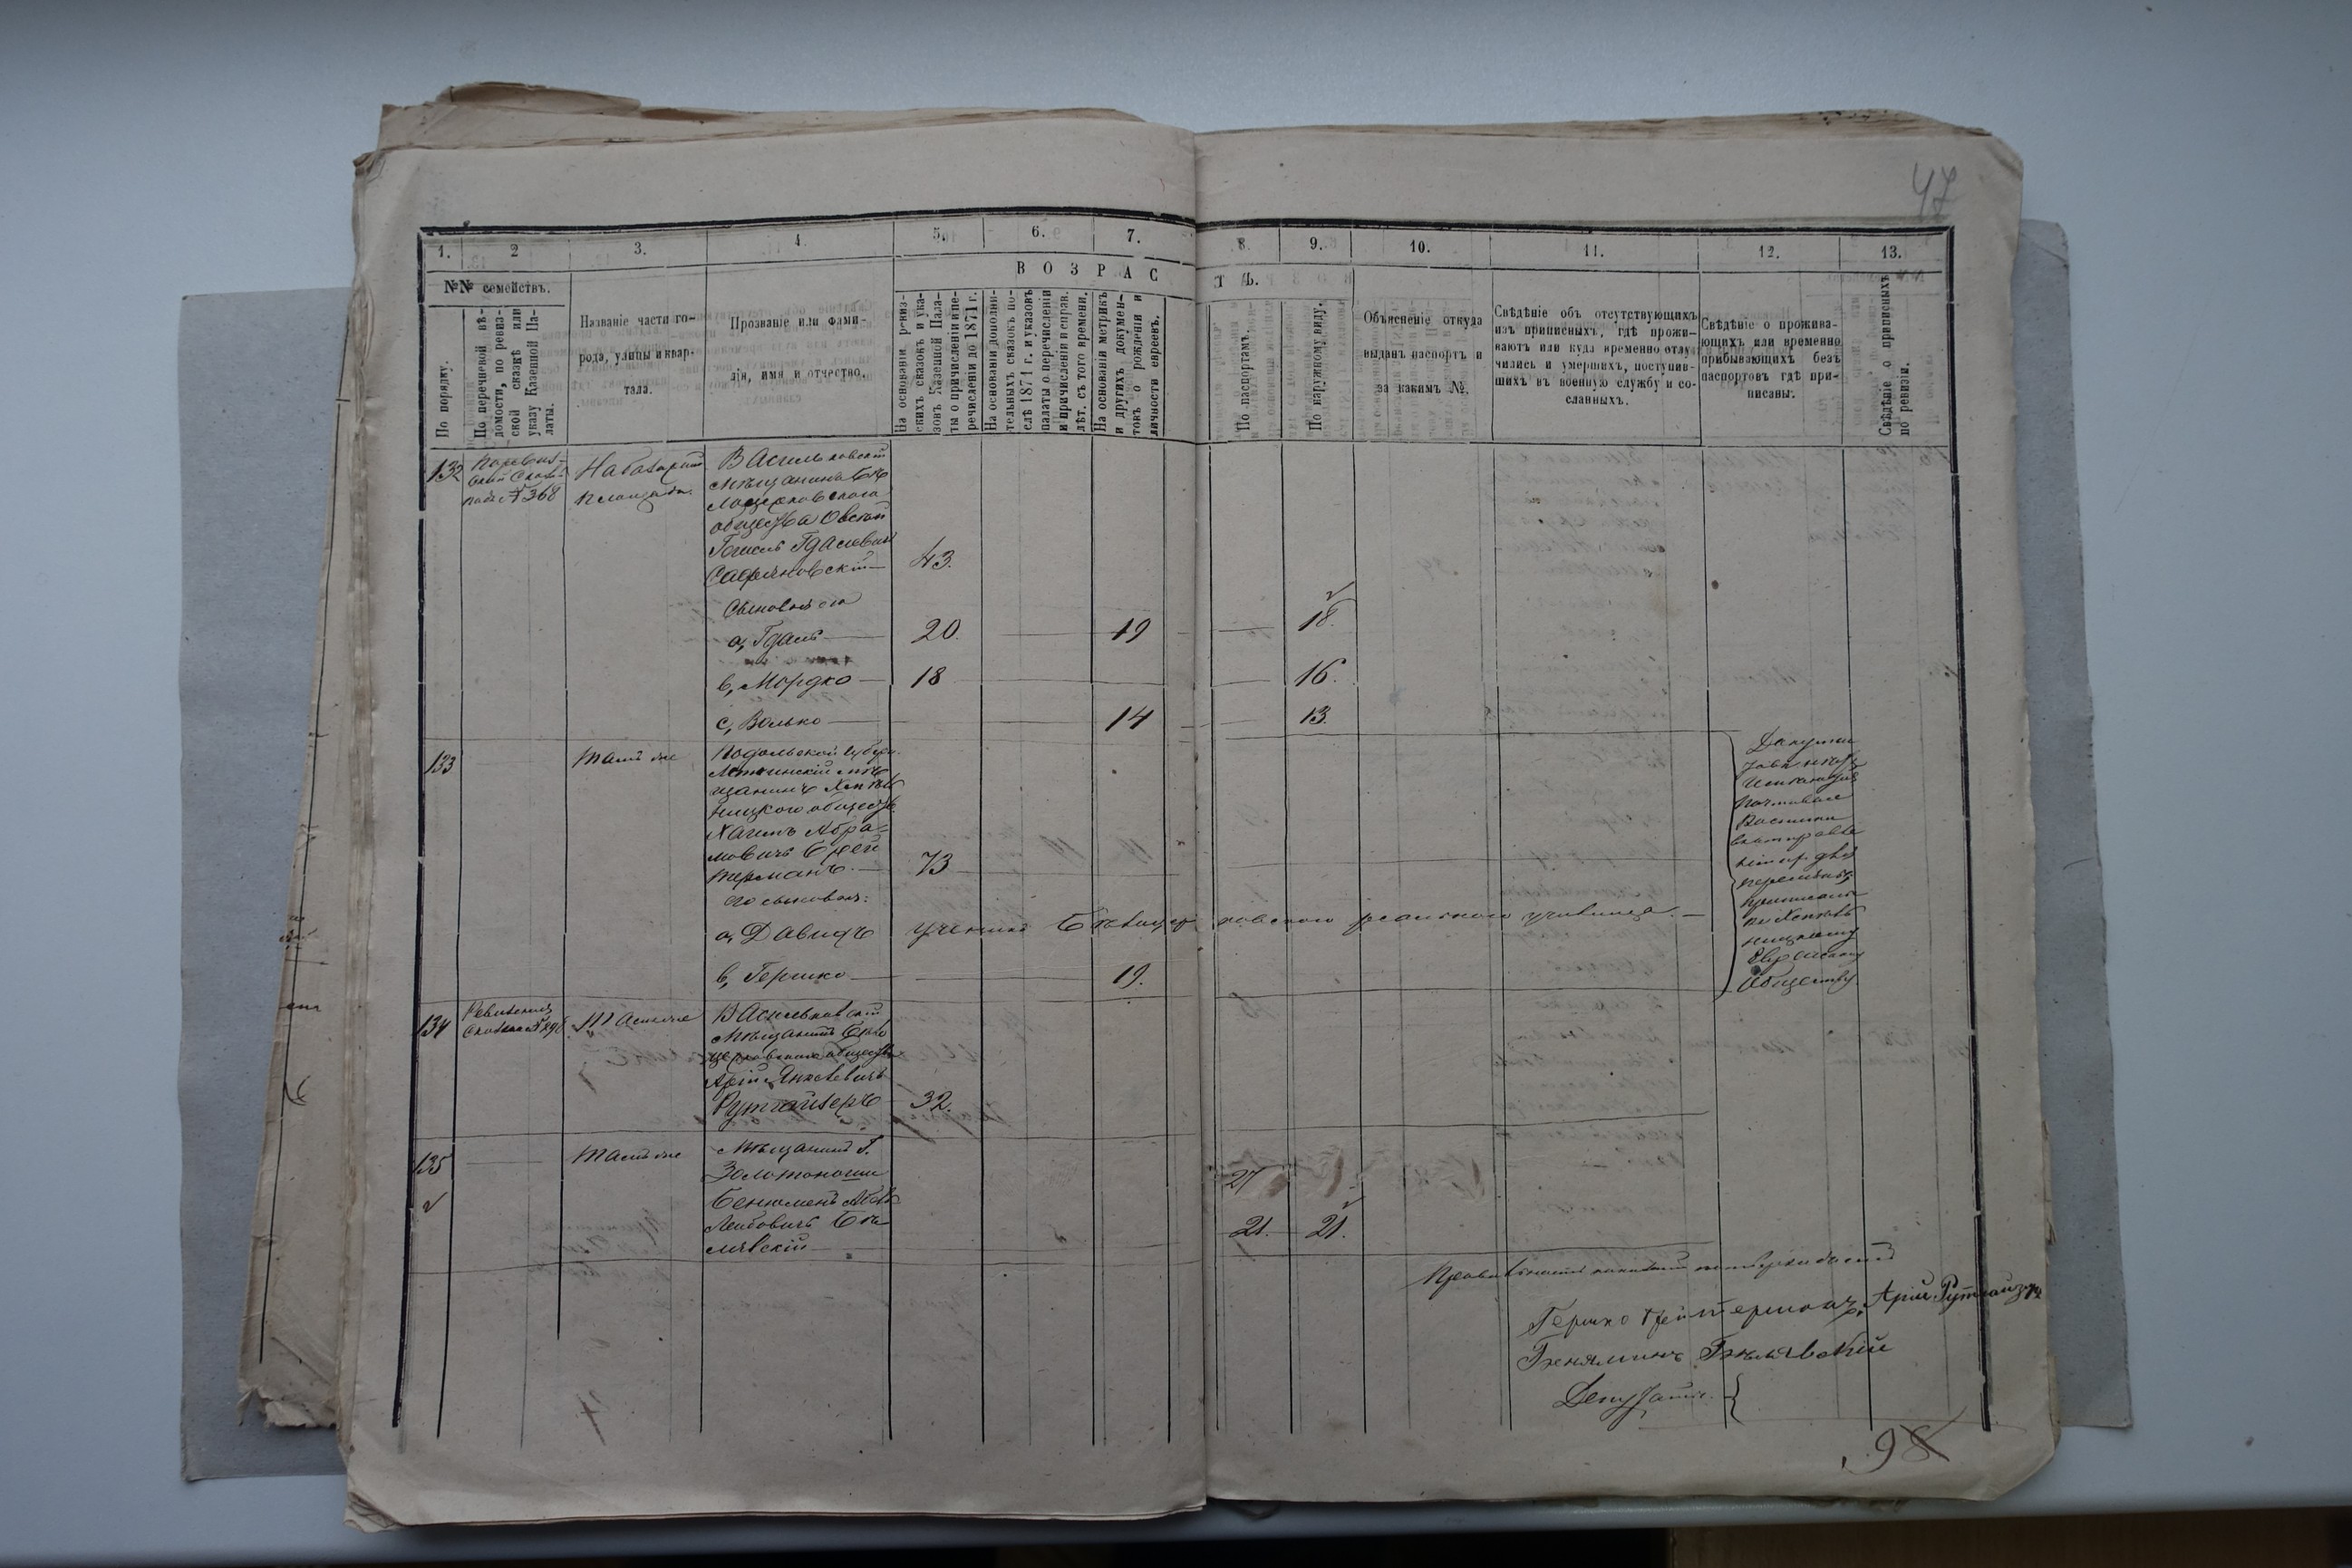 47
1. 2 3. 4. 5. 6. 7. 8. 9. 10. 11. 12. 13.
№№ семействъ.
ВОЗРАСТЪ.
По порядку.
По перечневой вѣ-
домости, по ревиз-
ской сказкѣ или
указу Казенной Па-
латы.
Названіе части го-
рода, улицы и квар-
тала.
Прозваніе или фами-
лія, имя и отчество.
На основаніи ревиз-
скихъ сказокъ и ука-
зовъ Казенной Пала-
ты о причисленіи и пе-
речисленіи до 1871 г.
На основаніи дополни-
тельныхъ сказокъ по-
слѣ 1871 г. и указовъ
палаты о перечисленіи
и причисленіи и справ.
лѣт. съ того времени.
На основаніи метрикъ
и другихъ докумен-
товъ о рожденіи и
личности евреевъ.
По паспортамъ.
По наружному виду.
Объясненіе откуда
выданъ паспортъ и
за какимъ №.
Свѣдѣніе объ отсутствующихъ
изъ приписныхъ, гдѣ прожи-
ваютъ или куда временно отлу-
чились и умершихъ, поступив-
шихъ въ военную службу и со-
сланныхъ.
Свѣдѣніе о прожива-
ющихъ или временно
прибывающихъ безъ
паспортовъ гдѣ при-
писаны.
Свѣдѣніе о приписныхъ
по ревизіи.
132
№ 368
На базарной
площади.
Васильковскій
мѣщанинъ Бѣ
лоцерковскаго
общества
Гдалевичъ
Сафьяновскій 43.
Сыновья его
а, Гдаль 20. 19 18.
в, Мордко 18 16.
с, Волько 14 13.
133
тамъ же
Подольской губерн.
Летинскій мѣ
щанинъ Хмѣль
ницкого общества
Хаимъ Абра-
мовичъ Брей
терманъ 73
его сыновья:
а, Давидъ ученикъ Бѣлоцерковскаго реальнаго училища.
в, Гершко 19.
Хмѣль
ницкому
Еврейскому
Обществу.
134
Ревизская
сказка №
Тамъ же
Васильковскій
мѣщанинъ Бѣло
церковскаго общества
Арій Янкелевичъ
Рутгайзеръ 32.
135
тамъ же
Мѣщанинъ г.
Золотоноши
Бенюменъ
Лейбовичъ Бѣ
лявскій
27
21. 21.
Правильность показаній подтверждаемъ
Гершко Брейтерманъ, Арій Рутгайзеръ
Бенямин Бѣлявскій
Депутаты
98